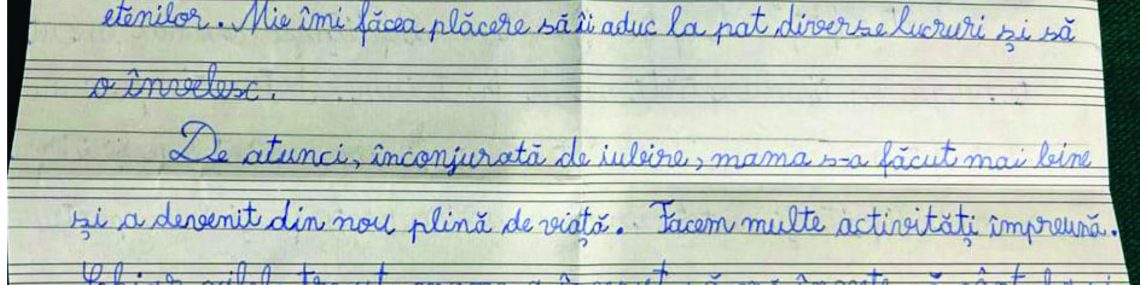 etenilor. Mie îmi făcea plăcere să îi aduc la pat diverse lucruri și să
o învelesc.
De atunci, înconjurată de iubire, mama s-a făcut mai bine
și a devenit din nou plină de viață. Facem multe activități împreună.